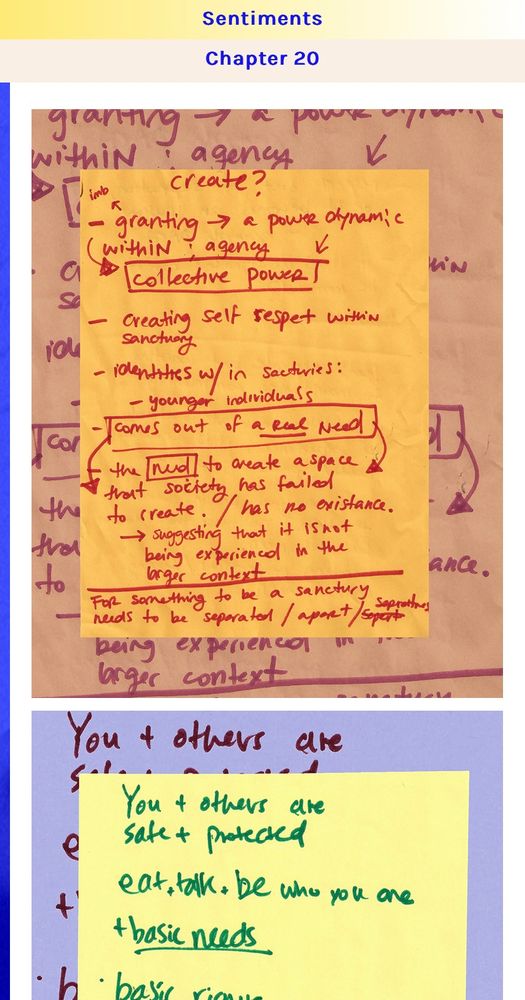 Sentiments
Chapter 20
granting → a power dynamic
within : agency
create?
imb
- granting → a power dynamic
within : agency
collective power
- creating self respet within
sanctury
- identities w/in sacturies:
- younger individuals
- comes out of a real need
- the need to create a space
that society has failed
to create. / has no existance.
→ suggesting that it is not
being experienced in the
larger context
For something to be a sanctury
needs to be separated / apart /
being experienced in
larger context
You + others are
You + others are
safe + protected
eat, talk, be who you are
+ basic needs